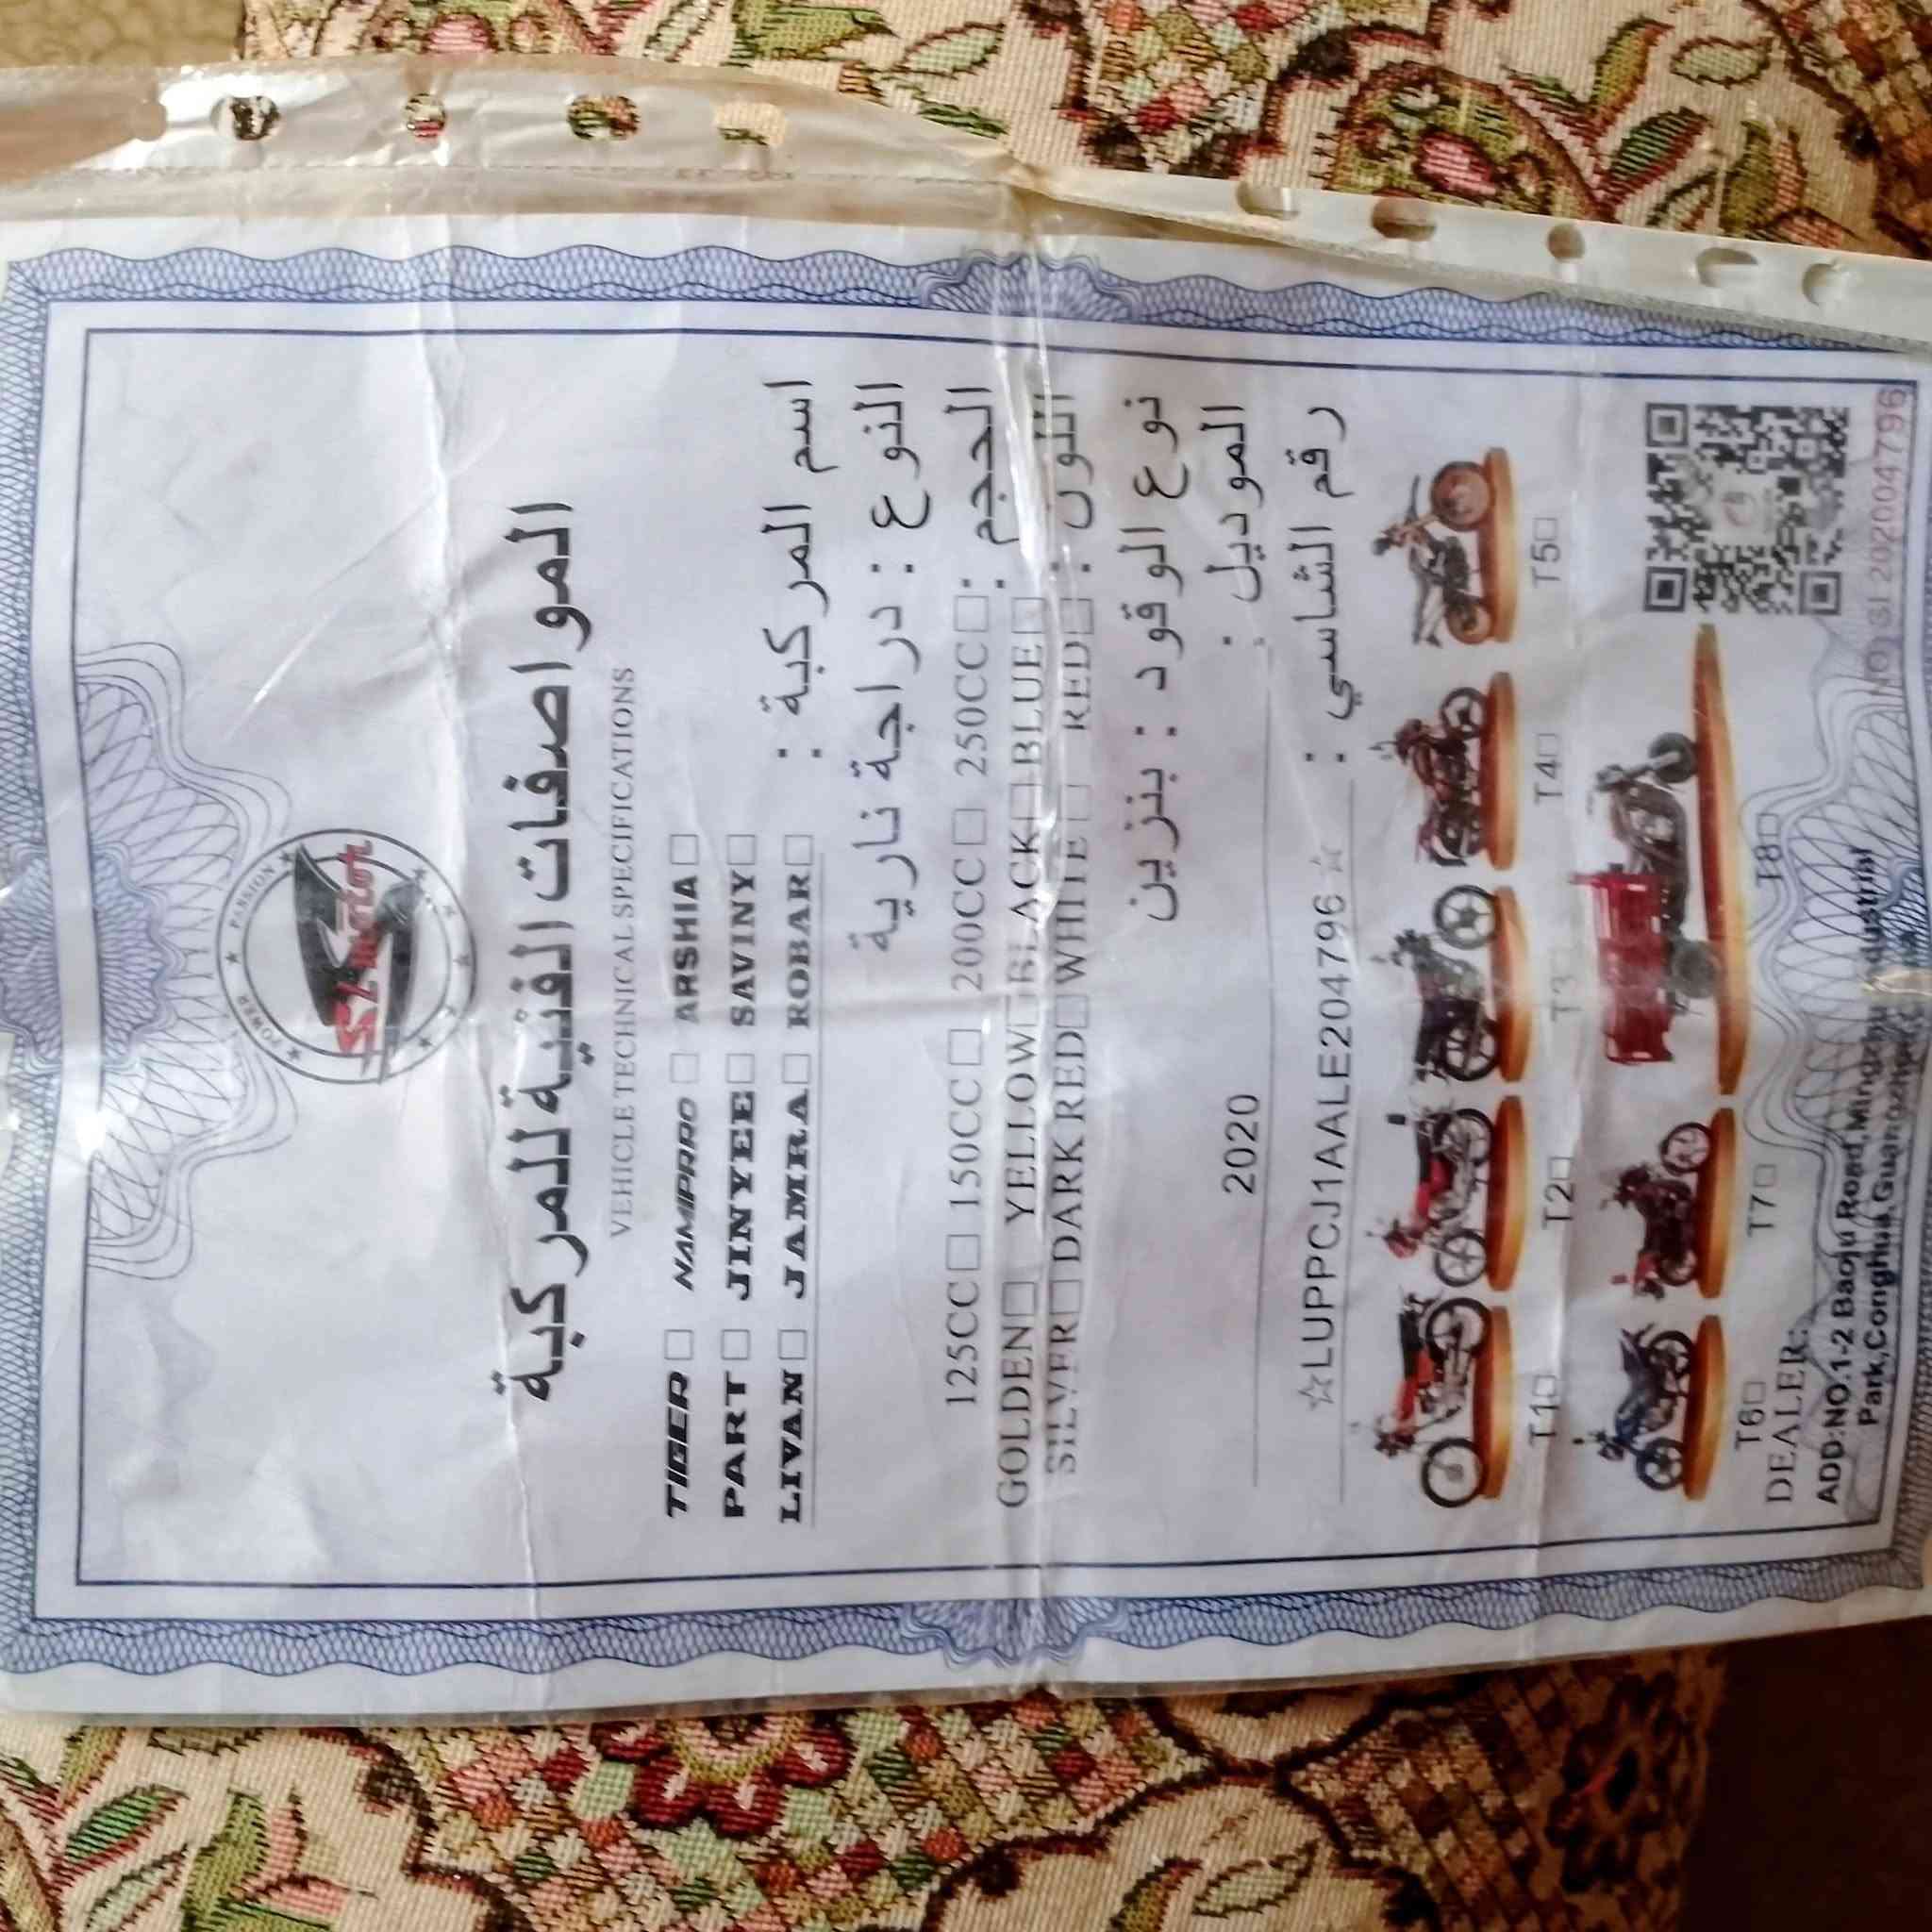 POWER ★ PASSION
SL motor
المواصفات الفنية للمركبة
VEHICLE TECHNICAL SPECIFICATIONS
TIGER □ NAMIPRO □ ARSHIA □
PART □ JINYEE □ SAVINY □
LIVAN □ JAMRA □ ROBAR □
اسم المركبة :
النوع : دراجة نارية
125CC □ 150CC □ 200CC □ 250CC □ الحجم :
GOLDEN □ YELLOW □ BLACK □ BLUE □
SILVER □ DARK RED □ WHITE □ RED □ اللون :
نوع الوقود : بنزين
2020 الموديل :
☆LUPPCJ1AALE204796☆ رقم الشاسي :
T1□ T2□ T3□ T4□ T5□
T6□ T7□ T8□
DEALER:
ADD:NO.1-2 Baoju Road,Mingzhu Industrial
Park,Conghua,Guangzhou
NO SL202004796